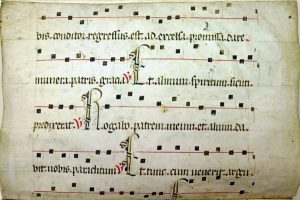 bis conditor regressus est ad excelsa promissa dare
munera patris gracia V Et almum spiritum sicuti
predixerat V Rogabo patrem meum et alium da
bit vobis paraclitum V Et tunc cum venerit argu